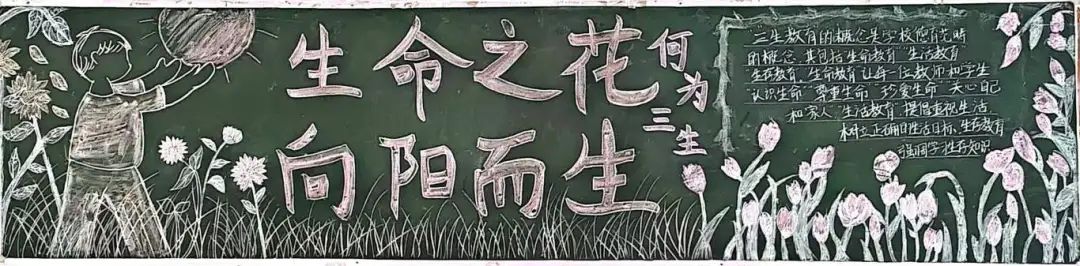 生命之花
向阳而生
何为三生
"三生教育的概念是学校德育先晴
的概念,其包括生命教育""生活教育
生存教育,生命教育让每一位教师和学生
"认识生命""尊重生命""珍爱生命"关心自己
和家人"生活教育,提倡重视生活
树立正确的生活目标,生存教育
强调学习生存知识